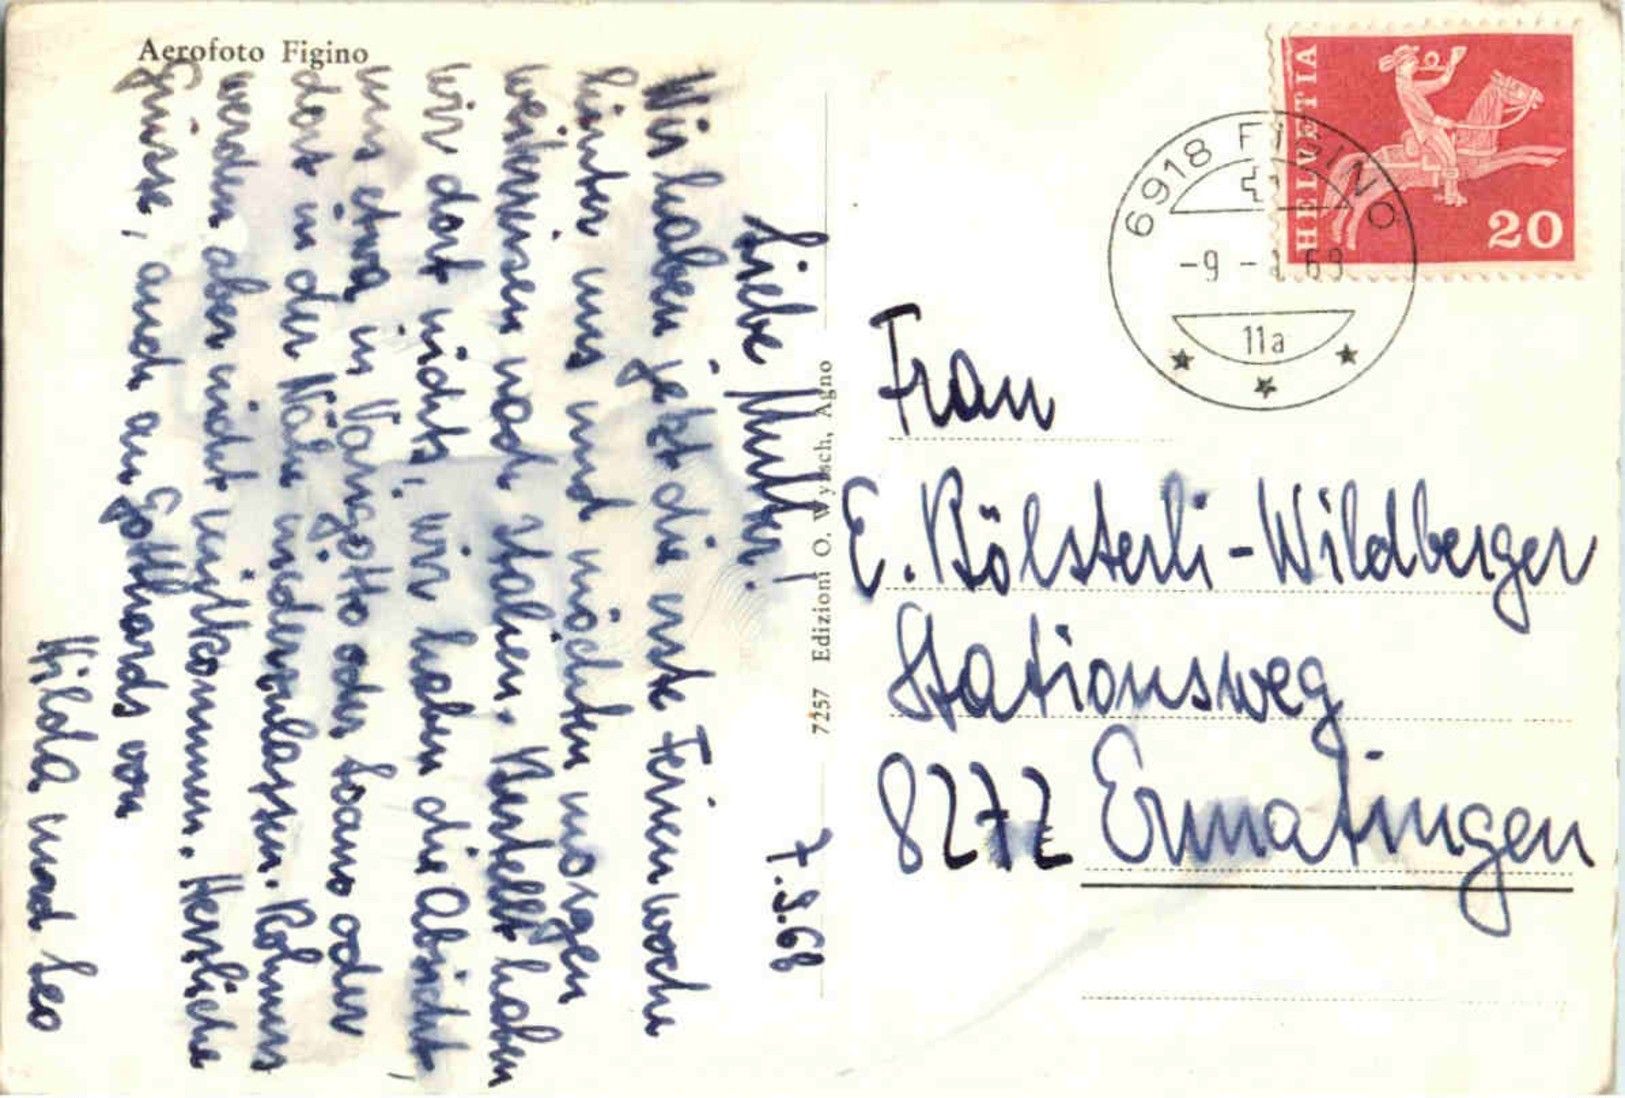 Aerofoto Figino
7.9.68
Liebe Mutter!
Wir haben jetzt die erste Ferienwoche
hinter uns und möchten morgen
weiterreisen nach Italien. Bestellt haben
wir dort nichts, wir haben die Absicht
uns etwa in Varigotto oder Loano oder
dort in der Nähe niederzulassen. Rohners
werden aber nicht mitkommen. Herzliche
Grüsse, auch an Gotthards von
Hilda und Leo
7257 Edizioni O. Wyssch, Agno
HELVETIA
20
6918 FIGINO
-9 - 69
11a
Frau
E. Bölsterli-Wildberger
Stationsweg
8272 Ermatingen